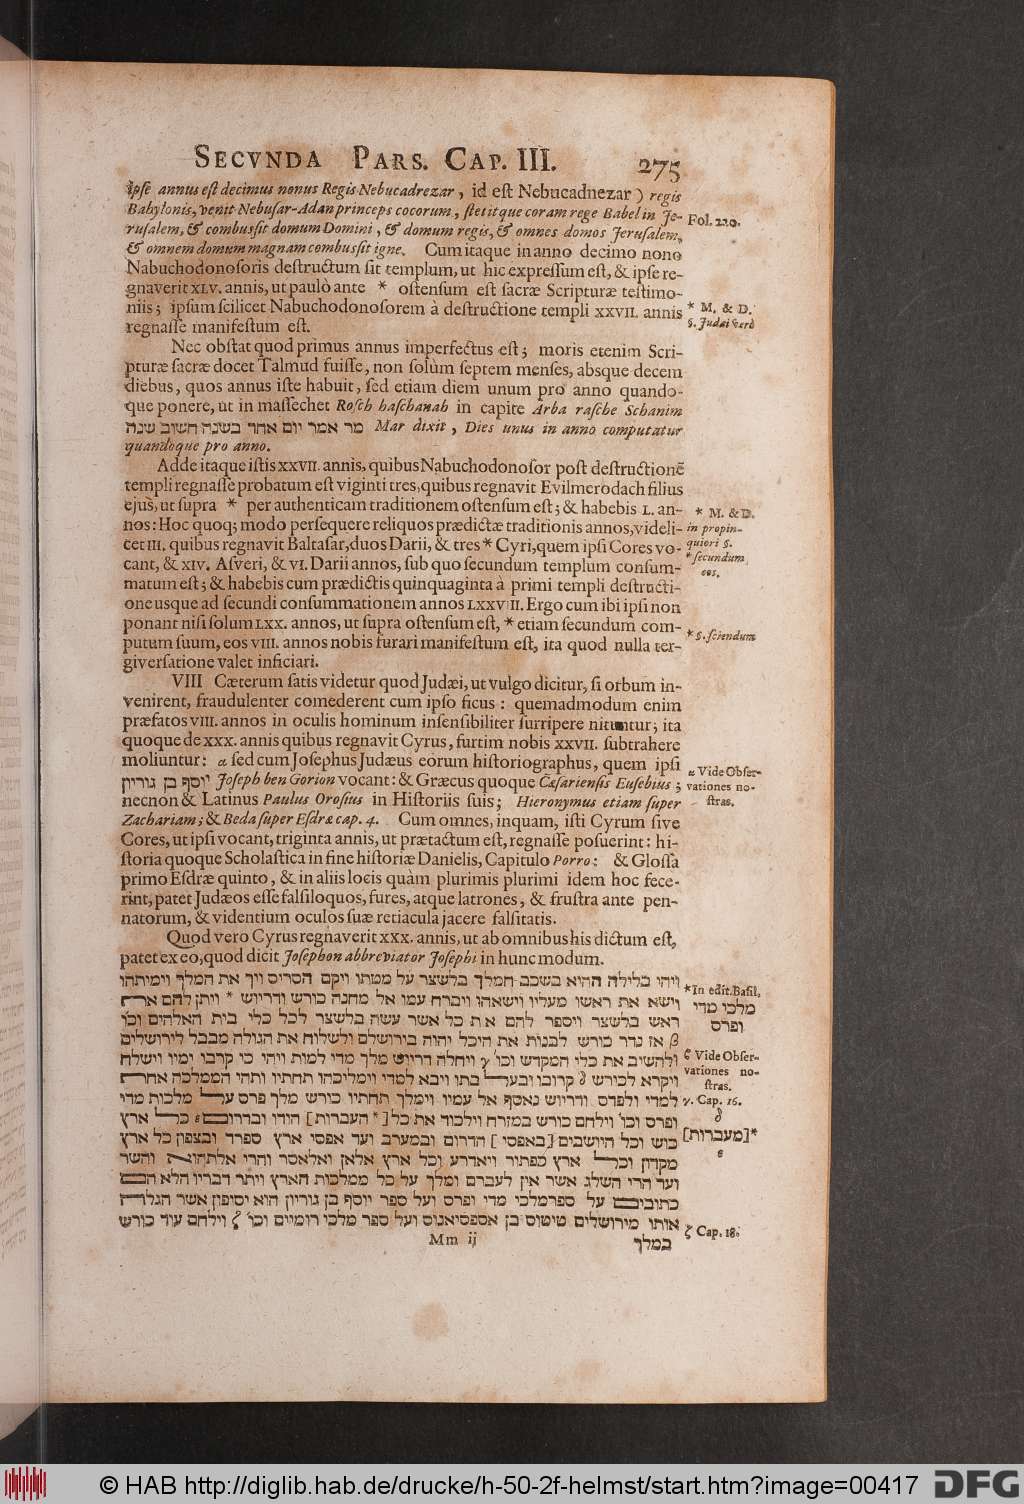 SECVNDA PARS. CAP. III. 275
ipſe annus eſt decimus nonus Regis Nebucadrezar, id eſt Nebucadnezar) regis
Babylonis, venit Nebuſar-Adan princeps cocorum, ſtetitque coram rege Babel in Je-
ruſalem, & combuſſit domum Domini, & domum regis, & omnes domos Jeruſalem,
Fol. 220.
& omnem domum magnam combuſſit igne. Cum itaque in anno decimo nono
Nabuchodonoſoris deſtructum ſit templum, ut hic expreſſum eſt, & ipſe re-
gnaverit XLV. annis, ut paulò ante * oſtenſum eſt ſacræ Scripturæ teſtimo-
niis; ipſum ſcilicet Nabuchodonoſorem à deſtructione templi XXVII. annis
* M. & D.
§. Judæi verò
regnaſſe manifeſtum eſt.
Nec obſtat quod primus annus imperfectus eſt; moris etenim Scri-
pturæ ſacræ docet Talmud fuiſſe, non ſolùm ſeptem menſes, absque decem
diebus, quos annus iſte habuit, ſed etiam diem unum pro anno quando-
que ponere, ut in maſſechet Roſch haſchanah in capite Arba raſche Schanim
מר אמר יום אחד בשנה חשוב שנה Mar dixit, Dies unus in anno computatur
quandoque pro anno.
Adde itaque iſtis XXVII. annis, quibus Nabuchodonoſor poſt deſtructionẽ
templi regnaſſe probatum eſt viginti tres, quibus regnavit Evilmerodach filius
ejus, ut ſupra * per authenticam traditionem oſtenſum eſt; & habebis L. an-
* M. & D.
nos: Hoc quoq; modo perſequere reliquos prædictæ traditionis annos, videli-
in propin-
cet III. quibus regnavit Baltaſar, duos Darii, & tres * Cyri, quem ipſi Cores vo-
quiori §.
cant, & XIV. Aſveri, & VI. Darii annos, ſub quo ſecundum templum conſum-
* ſecundum
eos.
matum eſt; & habebis cum prædictis quinquaginta à primi templi deſtructi-
one usque ad ſecundi conſummationem annos LXXVIII. Ergo cum ibi ipſi non
ponant niſi ſolum LXX. annos, ut ſupra oſtenſum eſt, * etiam ſecundum com-
* §. ſciendum
putum ſuum, eos VIII. annos nobis furari manifeſtum eſt, ita quod nulla ter-
giverſatione valet inficiari.
VIII Cæterum ſatis videtur quod Judæi, ut vulgo dicitur, ſi orbum in-
venirent, fraudulenter comederent cum ipſo ficus: quemadmodum enim
præfatos VIII. annos in oculis hominum inſenſibiliter ſurripere nituntur; ita
quoque de XXX. annis quibus regnavit Cyrus, furtim nobis XXVII. ſubtrahere
moliuntur: α ſed cum Joſephus Judæus eorum hiſtoriographus, quem ipſi
α Vide Obſer-
vationes no-
ſtras.
יוסף בן גוריון Joſeph ben Gorion vocant: & Græcus quoque Cæſarienſis Euſebius;
necnon & Latinus Paulus Oroſius in Hiſtoriis ſuis; Hieronymus etiam ſuper
Zachariam; & Beda ſuper Eſdræ cap. 4. Cum omnes, inquam, iſti Cyrum ſive
Cores, ut ipſi vocant, triginta annis, ut prætactum eſt, regnaſſe poſuerint: hi-
ſtoria quoque Scholaſtica in fine hiſtoriæ Danielis, Capitulo Porro: & Gloſſa
primo Eſdræ quinto, & in aliis locis quàm plurimis plurimi idem hoc fece-
rint, patet Judæos eſſe falſiloquos, fures, atque latrones, & fruſtra ante pen-
natorum, & videntium oculos ſuæ retiacula jacere falſitatis.
Quod vero Cyrus regnaverit XXX. annis, ut ab omnibus his dictum eſt,
patet ex eo, quod dicit Joſephon abbreviator Joſephi in hunc modum.
ויהי בלילה ההיא בשכב המלך בלשצר על מטתו ויקם הסריס ויך את המלך וימיתהו
*In edit. Baſil.
מלכי מדי
ופרס
וישא את ראשו מעליו וישאהו ויברח עמו אל מחנה כורש ודריוש * ויתן להם את
ראש בלשצר ויספר להם את כל אשר עשה בלשצר לכל כלי בית האלהים וכו׳
β אז נדר כורש לבנות את היכל יהוה בירושלם ולשלוח את הגולה מבבל לירושלים
ולהשיב את כלי המקדש וכו׳ γ ויחלה דריוש מלך מדי למות ויהי כי קרבו ימיו וישלח
ζ Vide Obſer-
vationes no-
ſtras.
ויקרא לכורש δ קרובו ובעל בתו ויבא למדי וימליכהו תחתיו ותהי הממלכה אחת
למדי ולפרס ודריוש נאסף אל עמיו וימלך תחתיו כורש מלך פרס על מלכות מדי
γ. Cap. 16.
δ
ופרס וכו׳ וילחם כורש במזרח וילכוד את כל [* העברות] הודו ובדרום ε כל ארץ
כוש וכל היושבים [באפסי] הדרום ובמערב ועד אפסי ארץ ספרד ובצפון כל ארץ
*[מעברות]
ε
מקדון וכל ארץ כפתור ויאדרע וכל ארץ אלאן ואלאסר והרי אלתהוא והשר
ועד הרי השלג אשר אין לעברם ומלך על כל ממלכות הארץ ויתר דבריו הלא הם
כתובים על ספר מלכי מדי ופרס ועל ספר יוסף בן גוריון הוא יסיפון אשר הגלה
אותו מירושלים טיטוס בן אספסיאנוס ועל ספר מלכי רומיים וכו׳ ζ וילחם עוד כורש
ζ Cap. 18.
Mm ij
במלך
© HAB http://diglib.hab.de/drucke/h-50-2f-helmst/start.htm?image=00417 DFG